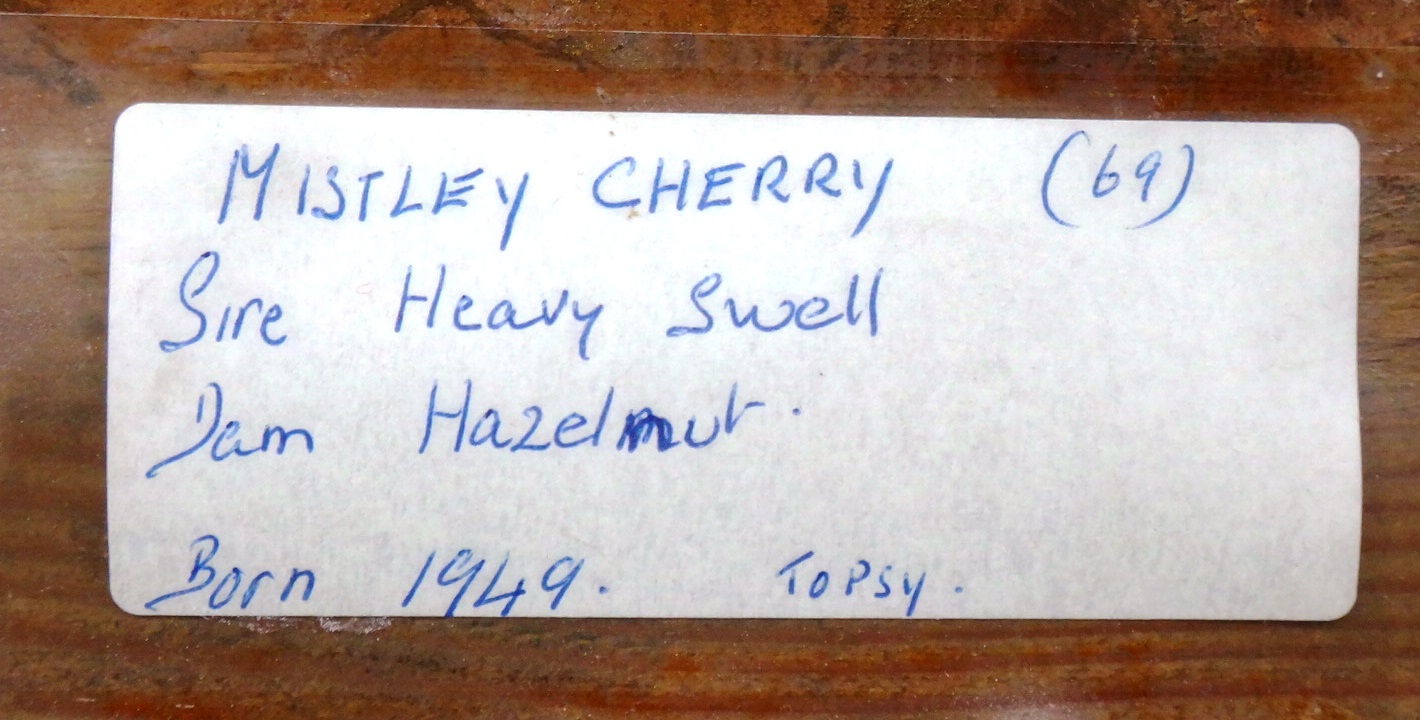 MISTLEY CHERRY (69)
Sire Heavy Swell
Dam Hazelnut.
Born 1949. TOPSY.